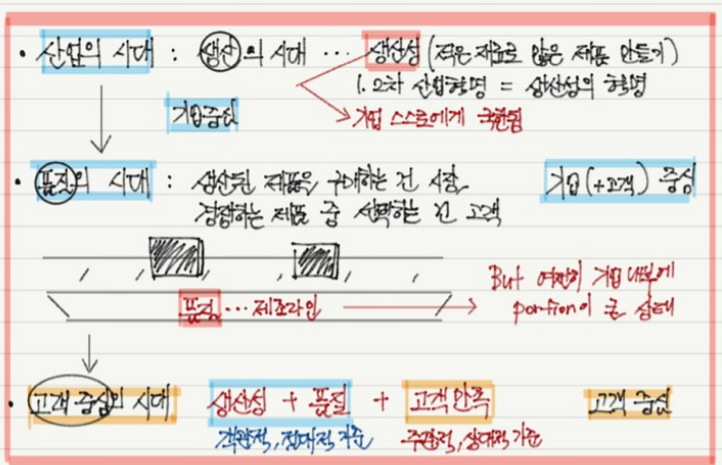 • 산업의 시대 : 생산의 시대 ... 생산성 (적은 재료로 많은 제품 만들기)
1, 2차 산업혁명 = 생산성의 혁명
기업중심
기업 스스로에게 국한됨
• 품질의 시대 : 생산된 제품을 구매하는 건 시장, 기업(+고객) 중심
경쟁하는 제품 중 선택하는 건 고객
But 여전히 기업 내부에
품질 ... 제조라인
portion이 큰 상태
• 고객 중심의 시대 생산성 + 품질 + 고객만족 고객 중심
객관적, 절대적 기준 주관적, 상대적 기준